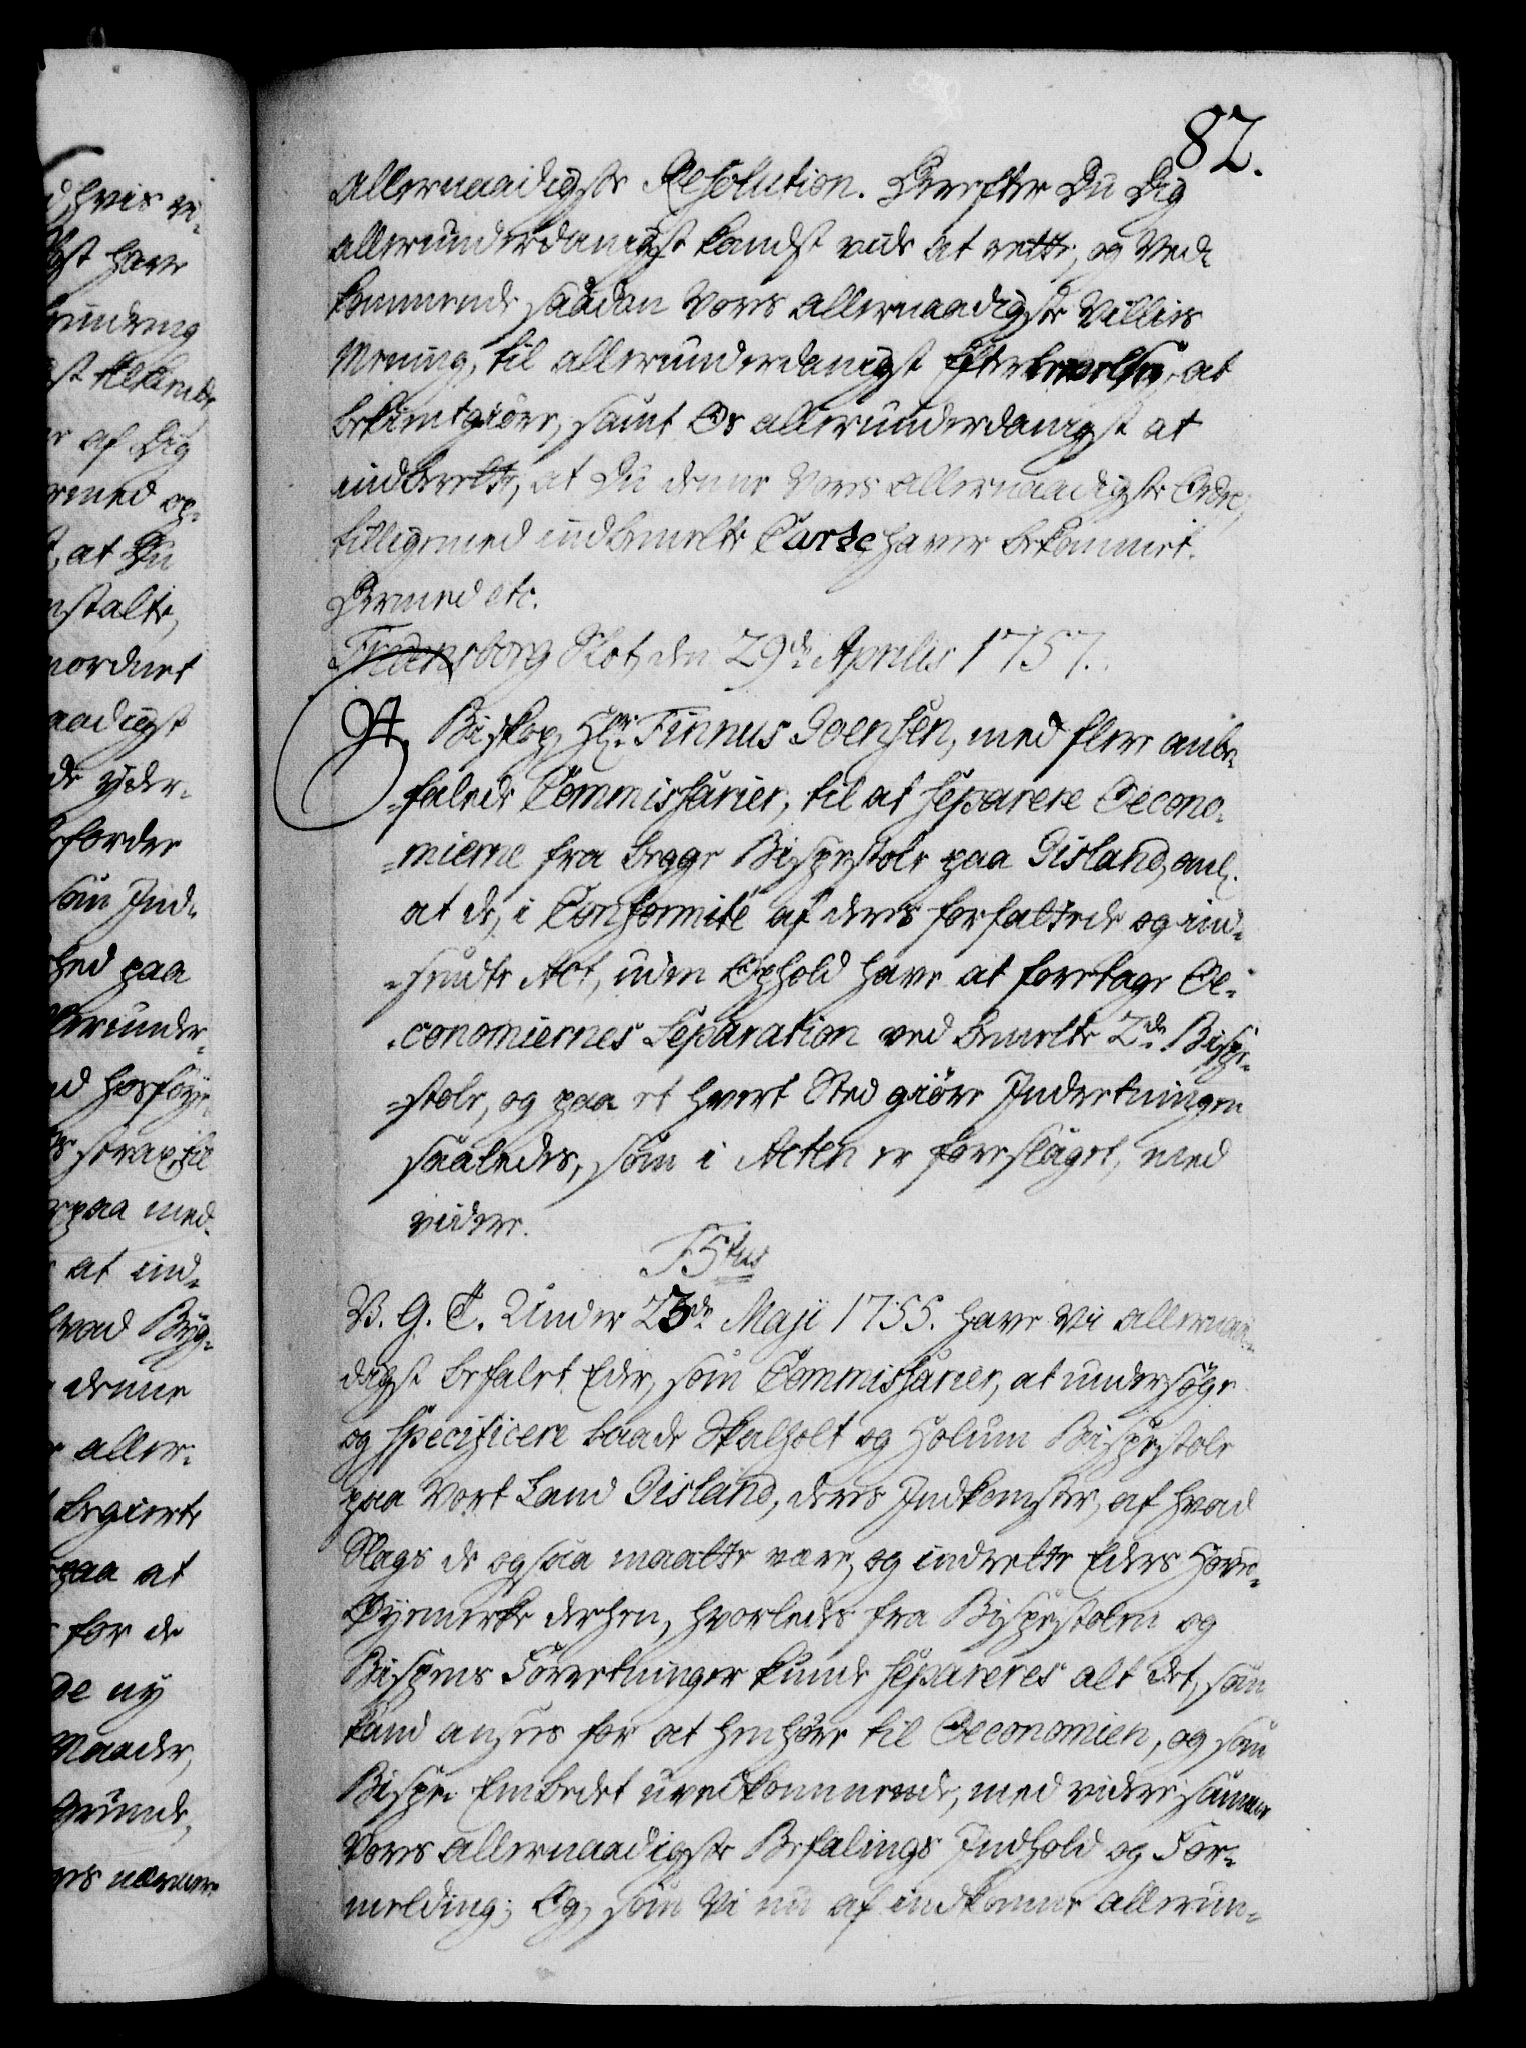 82.
Allernaadigste Resolution. Derefter Du Dig
allerunderdanigst kandst vide at rette, og Ved-
kommende saadan Vores allernaadigste Villies
Mening, til allerunderdanigst Efterlevelse, at
bekientgiöre, samt Os allerunderdanigst at
indberette, at Du denne Vores allernaadigste Ordre,
tilligemed indbemelte Carte haver bekommet.
Dermed etc.
Fredensborg Slot, den 29de Aprilis 1757.
At Biskop, Hr. Finnus Joensen, med flere anbe-
-falede Commissarier, til at separere Oecono-
-mierne fra begge Bispestole paa Iisland, anl.
at de, i Conformité af deres forfattede og ind-
-sendte Act, uden Ophold have at foretage Oe-
-conomiernes Separation ved bemelte 2de Bispe-
-stole, og paa et hvert Sted giöre Indretningen
saaledes, som i Acten er foreslaget, med
videre.
F5tus
V. G. T. Under 23de Maji 1755. have Vi allernaa-
digst befalet Eder, som Commissarier, at undersöge
og specificere baade Skalholt og Holum Bispestole
paa Vort Land Iisland, deres Indkomster, af hvad
Slags de ogsaa maatte være, og indrette Eders Hoved-
Öyemerke derhen, hvorledes fra Bispestolen og
Bispens Forretninger kunde separeres alt det, som
kand ansees for at henhöre til Oeconomien, og som
Bispe-Embedet uvedkommende, med videre samme
Vores allernaadigste Befalings Indhold og For-
melding; Og, som Vi nu af indkomne allerun-